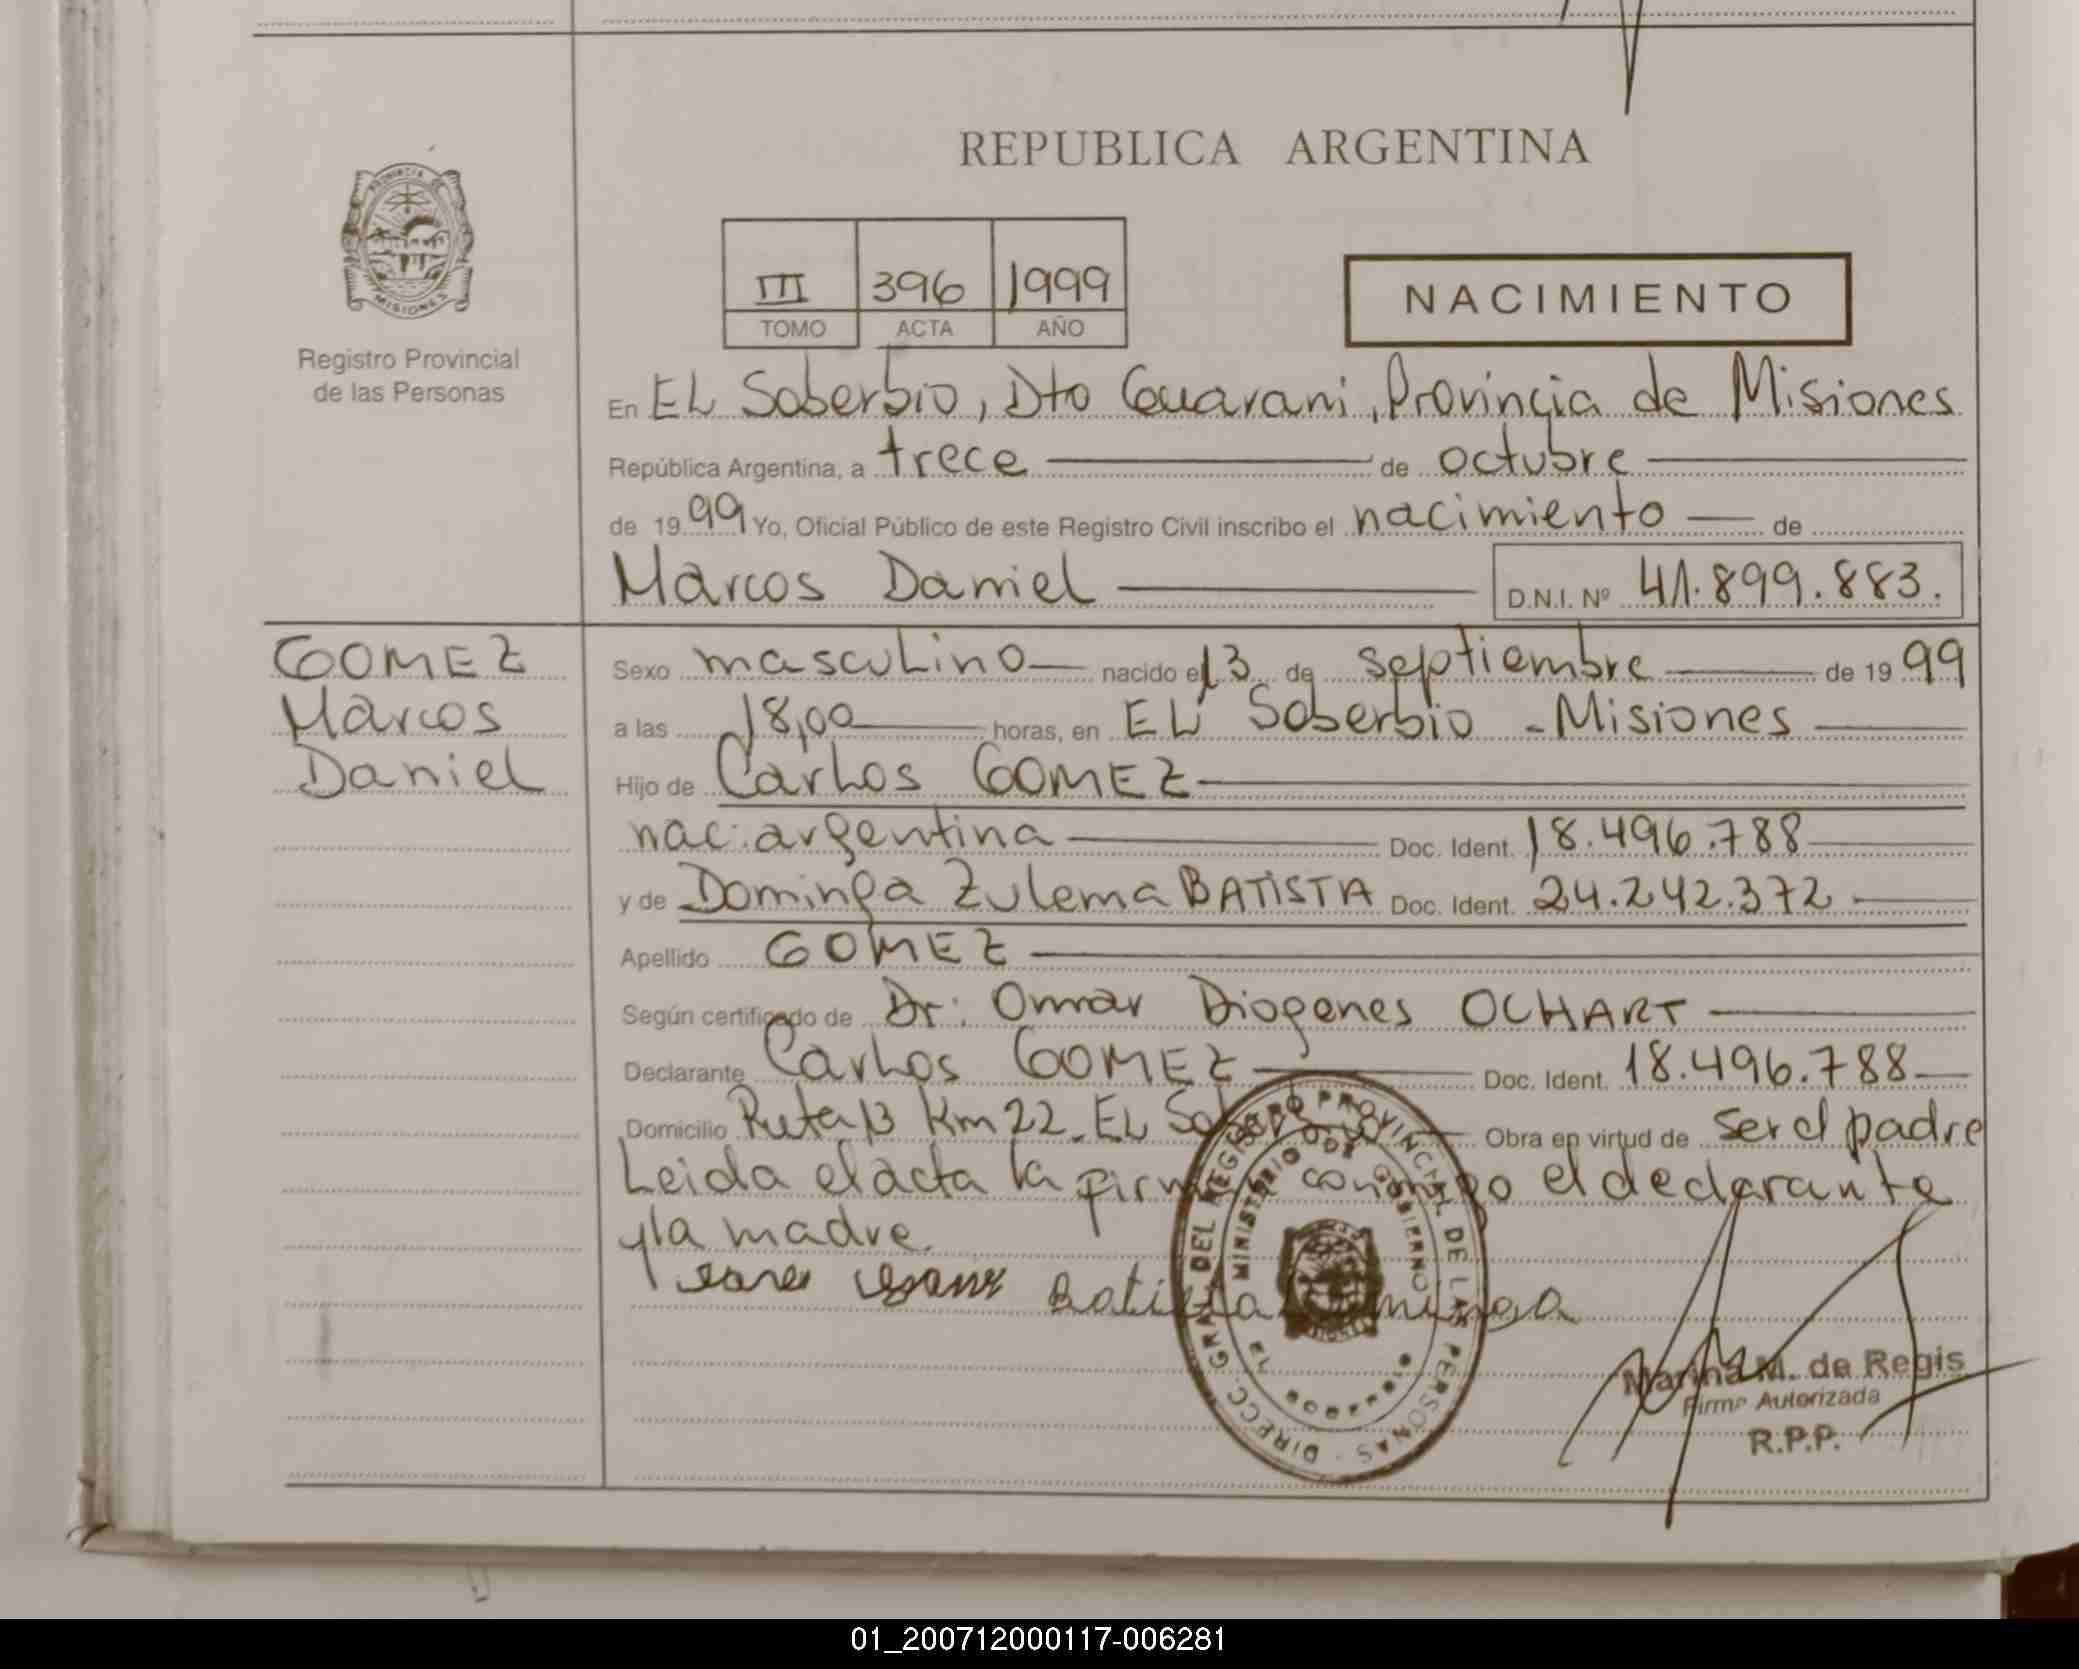 REPUBLICA ARGENTINA
PROVINCIA DE MISIONES
Registro Provincial
de las Personas
III 396 1999
TOMO ACTA AÑO
NACIMIENTO
En EL Soberbio, Dto Guarani, Provincia de Misiones
República Argentina, a trece de octubre
de 1999 Yo, Oficial Público de este Registro Civil inscribo el nacimiento de
Marcos Daniel D.N.I. Nº 41.899.883.
GOMEZ
Marcos
Daniel
Sexo masculino nacido el 13 de septiembre de 1999
a las 18,00 horas, en EL Soberbio - Misiones
Hijo de Carlos GOMEZ
nac. argentina Doc. Ident. 18.496.788
y de Dominga Zulema BATISTA Doc. Ident. 24.242.372
Apellido GOMEZ
Según certificado de Dr: Omar Diogenes OCHART
Declarante Carlos GOMEZ Doc. Ident. 18.496.788
Domicilio Ruta 13 Km 22. EL Soberbio Obra en virtud de ser el padre
Leida el acta la firma conmigo el declarante
y la madre.
Batista Dominga
DIRECC. GRAL. DEL REGISTRO PROVINCIAL DE LAS PERSONAS
MINISTERIO DE GOBIERNO
EL SOBERBIO
Marina M. de Regis
Firma Autorizada
R.P.P.
01_200712000117-006281